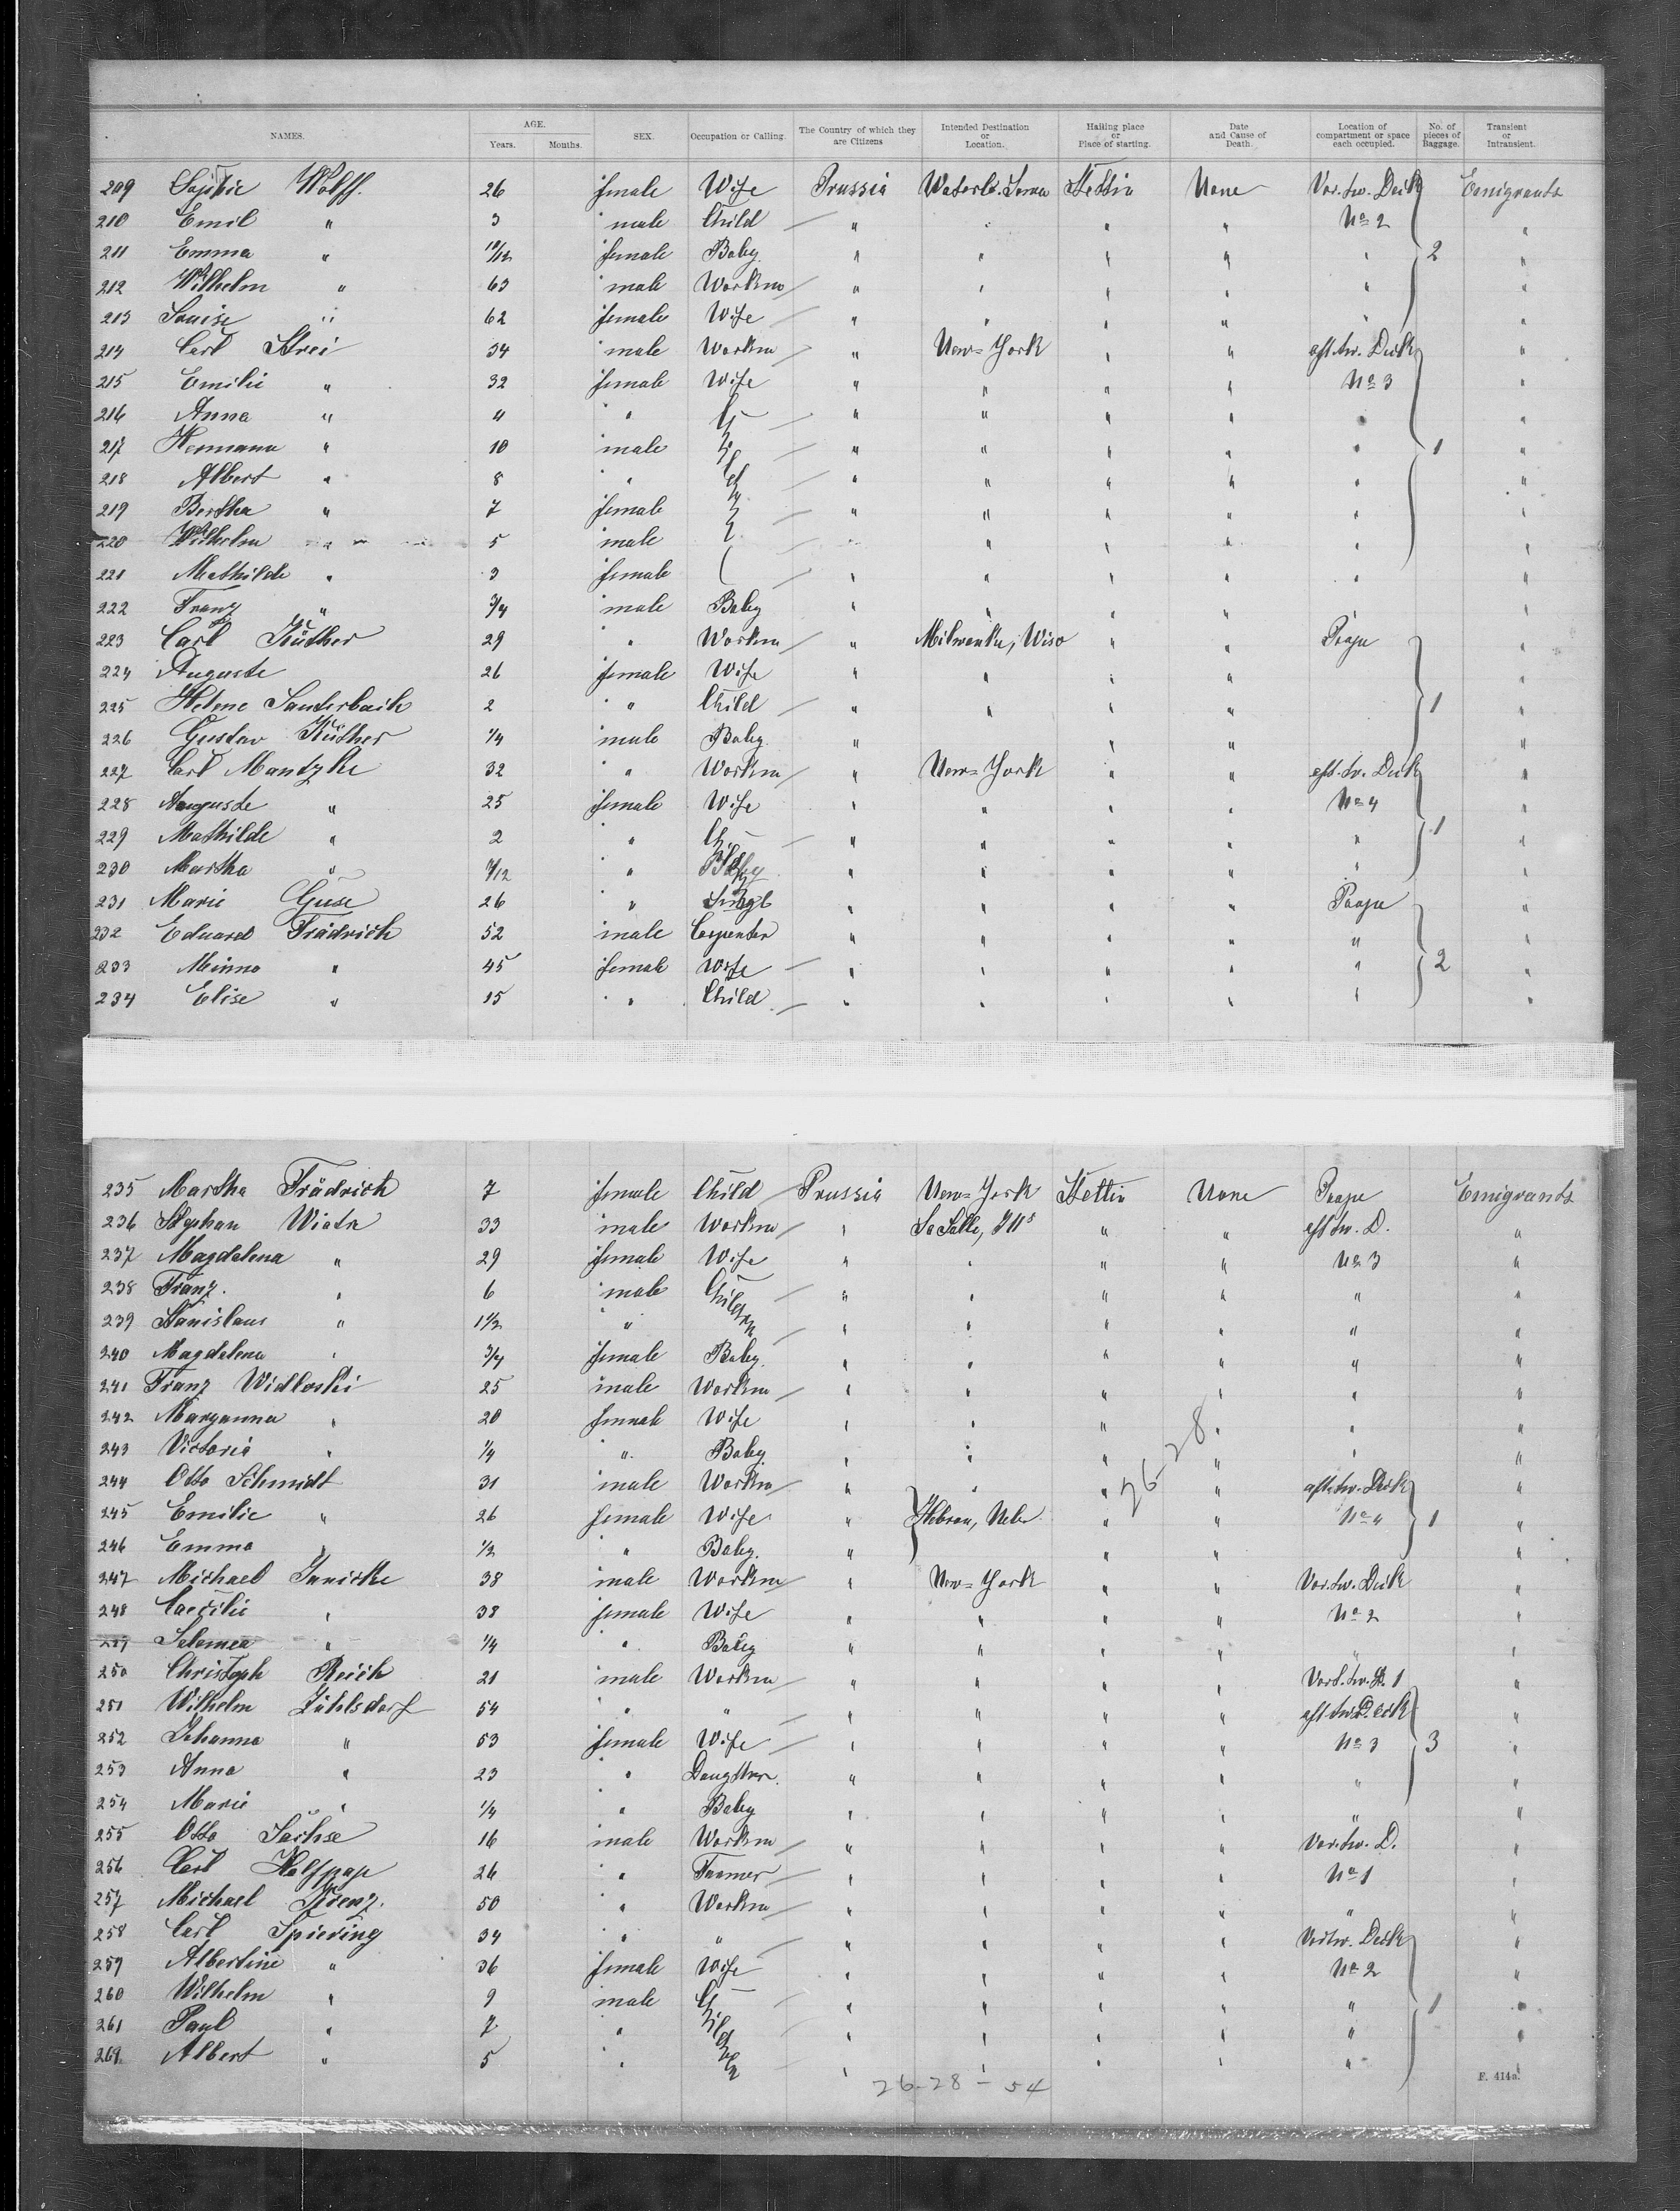 NAMES. AGE. Years. Months. SEX. Occupation or Calling. The Country of which they are Citizens Intended Destination or Location. Hailing place or Place of starting. Date and Cause of Death. Location of compartment or space each occupied. No. of pieces of Baggage. Transient or Intransient.
209 Sophie Wolff. 26 female Wife Prussia Waterlo. Iowa Stettin None Vor. tw. Deck Emigrants
210 Emil " 3 male Child " " " " No 2 "
211 Emma " 10/12 female Baby. " " " " " 2 "
212 Wilhelm " 63 male Workm " " " " " "
213 Louise " 62 female Wife " " " " " "
214 Carl Strei 34 male Workm " New=York " " aft. tw. Deck "
215 Emilie " 32 female Wife " " " " No 3 "
216 Anna " 11 " Children " " " " " "
217 Hermann " 10 male " " " " " 1 "
218 Albert " 8 " " " " " " "
219 Bertha " 7 female " " " " " "
220 Wilhelm " 5 male " " " " " "
221 Mathilde " 3 female " " " " " "
222 Franz " 3/4 male Baby " " " " " "
223 Carl Küther 29 " Workm " Milwauke, Wiso " " Poope "
224 Auguste 26 female Wife " " " " "
225 Helene Lauterbach 2 " Child " " " " 1 "
226 Gustav Küther 1/4 male Baby. " " " "
227 Carl Mantzke 32 " Workm " New=York " " aft. tw. Deck "
228 Auguste " 25 female Wife " " " " No 4 "
229 Mathilde " 2 " Child " " " " " 1 "
230 Martha " /12 " Baby " " " " " "
231 Marie Guse 26 " Singl " " " " Poope "
232 Eduard Frädrich 52 male Carpenter " " " " " "
233 Minna " 45 female Wife " " " " " 2 "
234 Elise " 15 " Child " " " " " "
235 Martha Frädrich 7 female Child Prussia New=York Stettin None Poope Emigrants
236 Stephan Wiatr 33 male Workm " La Salle, Ills " " aft tw. D. "
237 Magdalena " 29 female Wife " " " " No 3 "
238 Franz. " 6 male Children " " " " " "
239 Stanislaus " 1 1/2 " " " " " " "
240 Magdalena " 3/4 female Baby. " " " " " "
241 Franz Widloski 25 male Workm " " " " " "
242 Maryanna " 20 female Wife " " " " " "
243 Victoria " 1/4 " Baby. " " " " " "
244 Otto Schmidt 31 male Workm " " " " aft. tw. Deck "
245 Emilie " 26 female Wife " Hebron, Nebr " " No 4 1 "
246 Emma " 1/2 " Baby. " " " "
26-28
247 Michael Janicke 38 male Workm " New=York " " Vor. tw. Deck "
248 Caecilie " 38 female Wife " " " " No 2 "
249 Salomea " 1/4 " Baby " " " " " "
250 Christoph Reich 21 male Workm " " " " Vord. tw. D. 1 "
251 Wilhelm Zühlsdorf 54 " " " " " " aft tw. Deck "
252 Johanna " 53 female Wife " " " " No 3 3 "
253 Anna " 23 " Daughter. " " " " " "
254 Marie " 1/4 " Baby " " " " " "
255 Otto Sachse 16 male Workm " " " " Vor. tw. D. "
256 Carl Halfpap 26 " Farmer " " " " No 1 "
257 Michael Krenz. 50 " Workm " " " " " "
258 Carl Spiering 34 " " " " " " Vor tw. Deck "
259 Albertine " 36 female Wife " " " " No 2 "
260 Wilhelm " 9 male Children " " " " " 1 "
261 Paul " 7 " " " " " " "
262 Albert " 5 " " " " " " "
26-28-54
F. 414a.